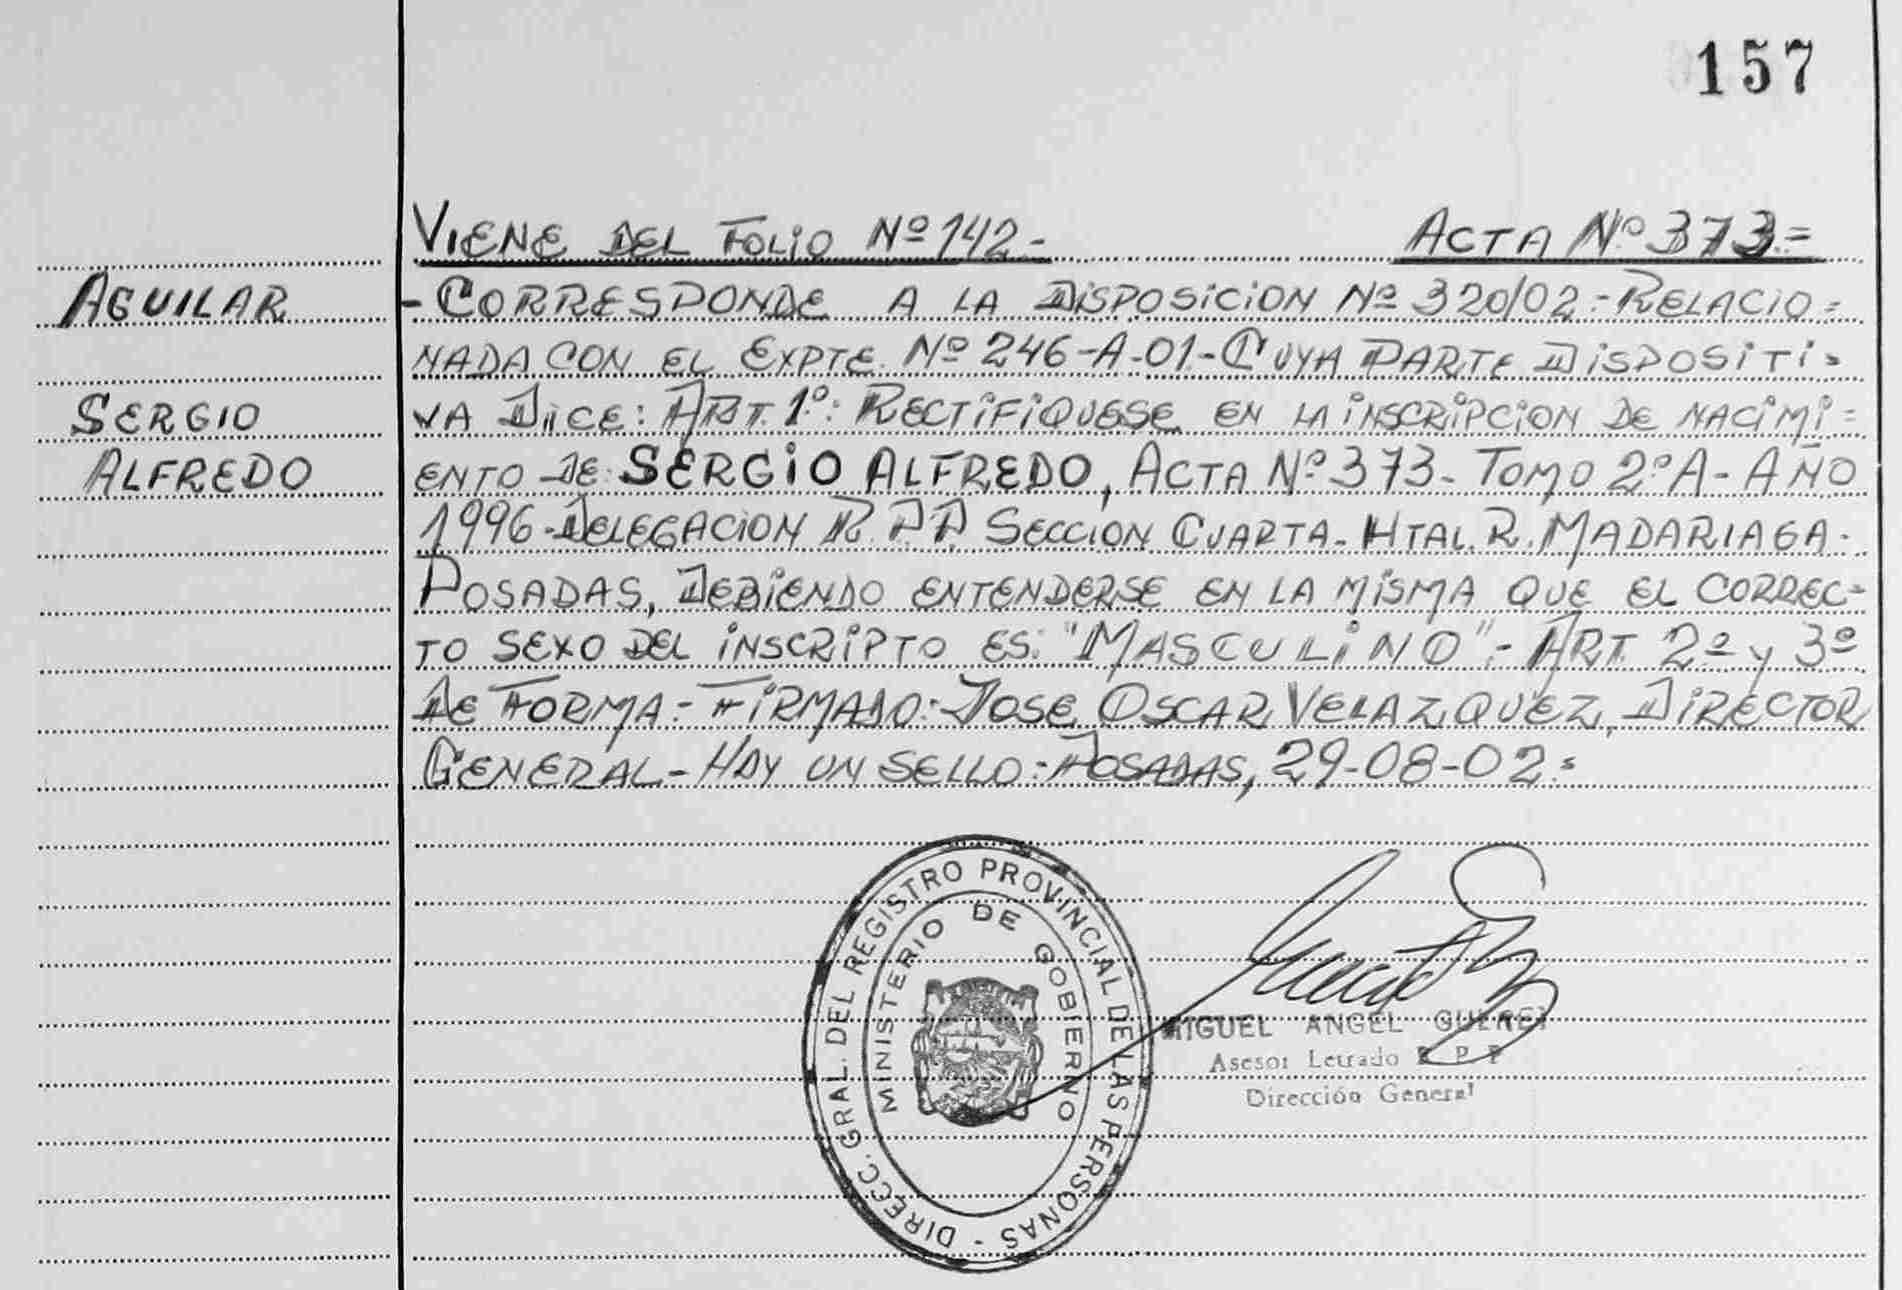 157
VIENE DEL FOLIO Nº 142.- ACTA Nº 373.=
AGUILAR
SERGIO
ALFREDO
- CORRESPONDE A LA DISPOSICION Nº 320/02.- RELACIO=
NADA CON EL EXPTE. Nº 246-A-01.- CUYA PARTE DISPOSITI=
VA DICE: ART. 1º: RECTIFIQUESE EN LA INSCRIPCION DE NACIMI=
ENTO DE: SERGIO ALFREDO, ACTA Nº 373- TOMO 2ºA- AÑO
1996- DELEGACION R.P.P. SECCION CUARTA- HTAL. R. MADARIAGA-
POSADAS, DEBIENDO ENTENDERSE EN LA MISMA QUE EL CORREC-
TO SEXO DEL INSCRIPTO ES: "MASCULINO".- ART. 2º y 3º
DE FORMA.- FIRMADO: JOSE OSCAR VELAZQUEZ, DIRECTOR
GENERAL- HAY UN SELLO: POSADAS, 29-08-02.=
DIRECC. GRAL. DEL REGISTRO PROVINCIAL DE LAS PERSONAS -
MINISTERIO DE GOBIERNO
MIGUEL ANGEL
Asesor Letrado R P P
Dirección General